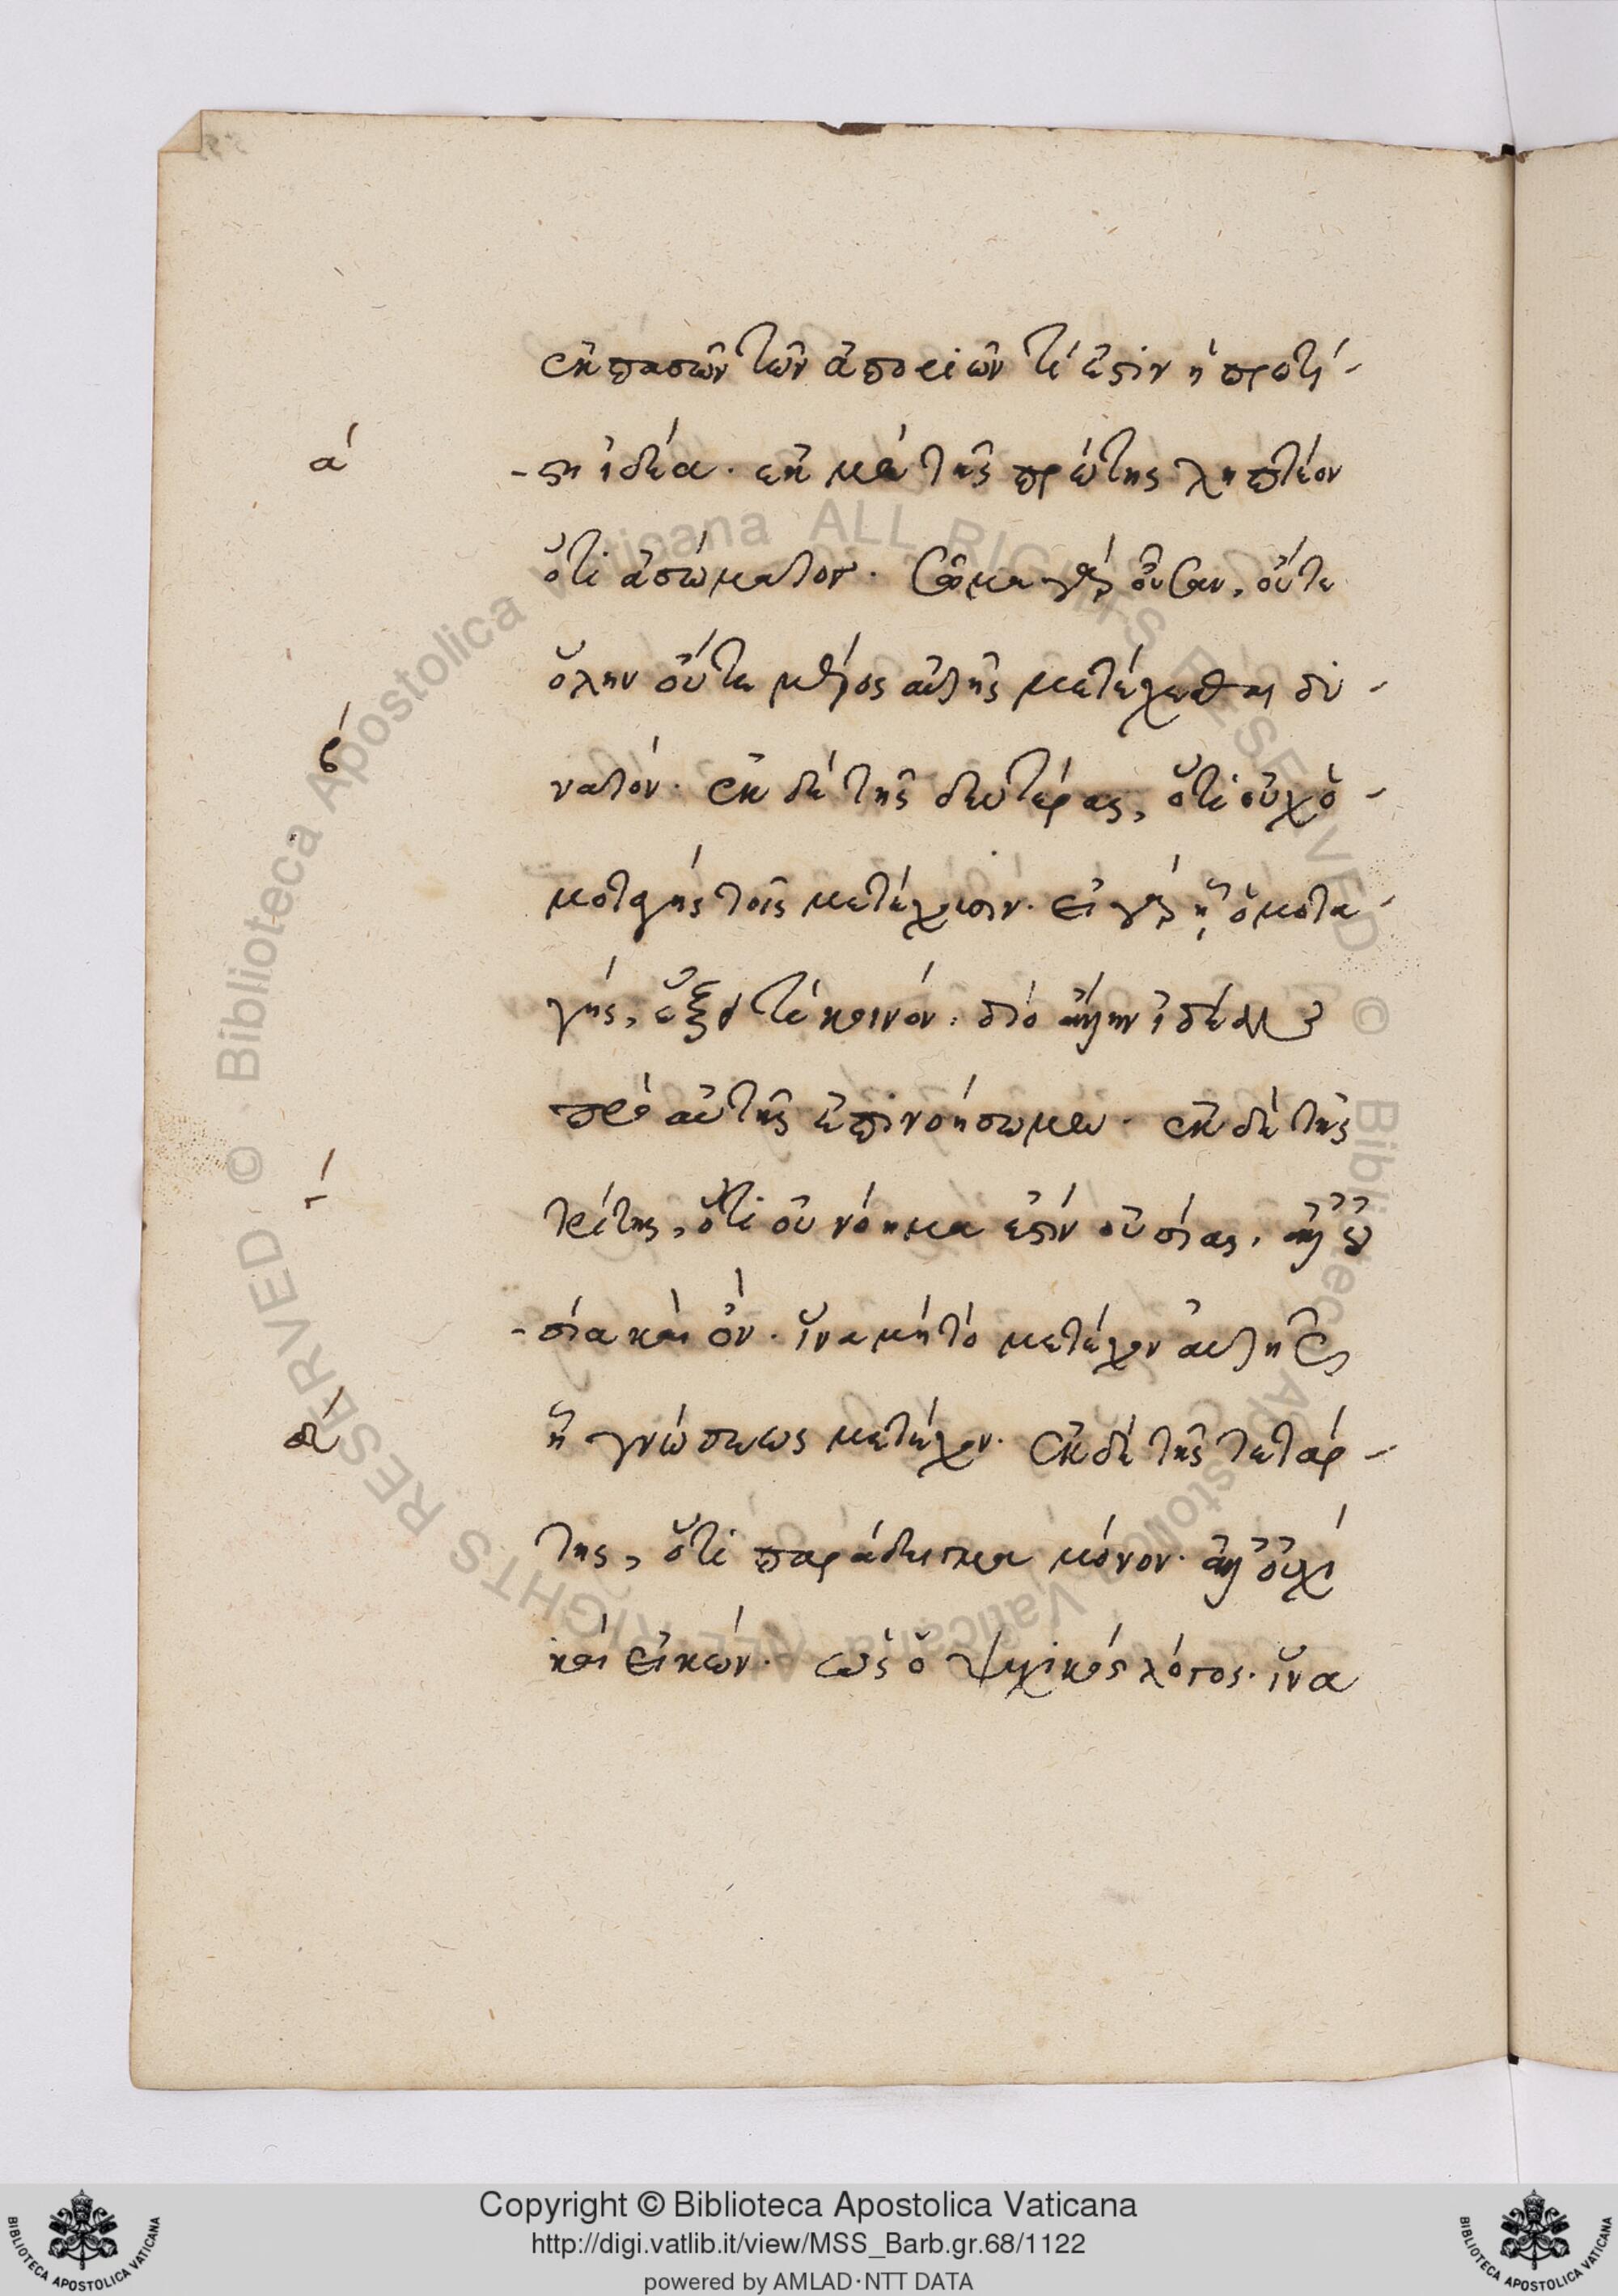 ἐκ πασῶν τῶν ἀποριῶν τί ἐστιν ἡ προτί-
α΄
-στη ἰδέα. ἐκ μὲν τῆς πρώτης ληπτέον
ὅτι ἀσώματον. σῶμα γὰρ οὖσαν, οὔτε
ὅλην οὔτε μέρος αὐτῆς μετέχεσθαι δυ-
β΄
νατόν. ἐκ δὲ τῆς δευτέρας, ὅτι οὐχ ὁ-
μοταγὴς τοῖς μετέχουσιν. εἰ γὰρ ᾖ ὁμοτα-
γής, ἕξει τι κοινόν. διὸ ἄλλην ἰδέαν
πρὸ αὐτῆς ἐπινοήσωμεν. ἐκ δὲ τῆς
γ΄
τρίτης, ὅτι οὐ νόημα ἐστὶν οὐσίας, ἀλλ' οὐ
-σία καὶ ὄν. ἵνα μὴ τὸ μετέχον αὐτῆς
δ΄
ἢ γνώσεως μετέχον. ἐκ δὲ τῆς τετάρ-
της, ὅτι παράδειγμα μόνον. ἀλλ' οὐχὶ
καὶ εἰκών. ὡς ὁ ψυχικὸς λόγος. ἵνα
Copyright © Biblioteca Apostolica Vaticana
http://digi.vatlib.it/view/MSS_Barb.gr.68/1122
powered by AMLAD·NTT DATA
BIBLIOTECA APOSTOLICA VATICANA
BIBLIOTECA APOSTOLICA VATICANA
© Biblioteca Apostolica Vaticana ALL RIGHTS RESERVED
© Biblioteca Apostolica Vaticana ALL RIGHTS RESERVED